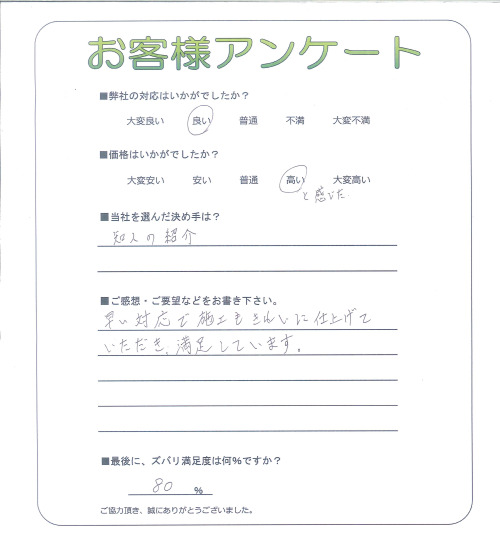 お客様アンケート
■弊社の対応はいかがでしたか？
大変良い 良い 普通 不満 大変不満
■価格はいかがでしたか？
大変安い 安い 普通 高い 大変高い
と感じた
■当社を選んだ決め手は？
知人の紹介
■ご感想・ご要望などをお書き下さい。
早い対応で施工もきれいに仕上げて
いただき、満足しています。
■最後に、ズバリ満足度は何％ですか？
80 ％
ご協力頂き、誠にありがとうございました。